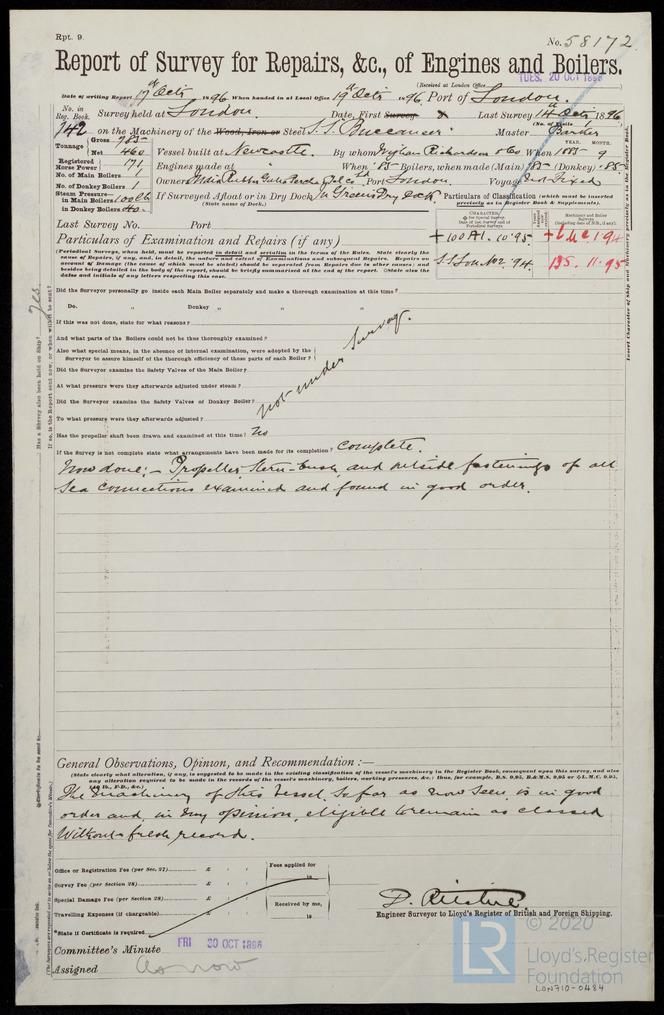 Rpt. 9.
No. 58172
Report of Survey for Repairs, &c., of Engines and Boilers.
(Received at London Office
TUES. 20 OCT 1896
Date of writing Report 17th Octr 1896 When handed in at Local Office 19th Octr 1896 Port of London.
No. in Reg. Book. Survey held at London. Date, First Survey Last Survey 14th Octr 1896
(No. of Visits 1
742 on the Machinery of the Wood, Iron or Steel S.S. Buccaneer Master Barker
Tonnage Gross 785 Net 460 Vessel built at Newcastle. By whom Wigham Richardson & Co When 1885 YEAR. MONTH. 9
Registered Horse Power 171 Engines made at " When '85 Boilers, when made (Main) 85 (Donkey) 85
No. of Main Boilers
No. of Donkey Boilers 1 Owners India Rubber Gutta Percha Co Ltd Port London Voyage Not Fixed
Steam Pressure— in Main Boilers 100 lb in Donkey Boilers 40 If Surveyed Afloat or in Dry Dock In Greens Dry Dock
(State name of Dock.)
Particulars of Classification (which must be inserted precisely as in Register Book & Supplements).
Last Survey No. Port
Particulars of Examination and Repairs (if any)
CHARACTER
+100A1. 10.95
S.S. Lon. No2. '94.
Machinery and Boiler Surveys
+LMC 1.94
BS. 11.95
(Periodical Surveys, when held, must be reported in detail and seriatim in the terms of the Rules. State clearly the cause of Repairs, if any, and, in detail, the nature and extent of Examinations and subsequent Repairs. Repairs on account of Damage (the cause of which must be stated) should be separated from Repairs due to other causes; and besides being detailed in the body of the report, should be briefly summarised at the end of the report. State also the dates and initials of any letters respecting this case.
Did the Surveyor personally go inside each Main Boiler separately and make a thorough examination at this time?
Do. " Donkey " " "
If this was not done, state for what reasons?
And what parts of the Boilers could not be thoroughly examined?
Also what special means, in the absence of internal examination, were adopted by the Surveyor to assure himself of the thorough efficiency of those parts of each Boiler?
Did the Surveyor examine the Safety Valves of the Main Boiler?
At what pressure were they afterwards adjusted under steam?
Did the Surveyor examine the Safety Valves of Donkey Boiler?
To what pressure were they afterwards adjusted?
not under Survey.
Has the propeller shaft been drawn and examined at this time? No
If the Survey is not complete state what arrangements have been made for its completion? Complete.
Now done:— Propeller Stern-bush and outside fastenings of all
Sea Connections examined and found in good order.
General Observations, Opinion, and Recommendation:—
(State clearly what alteration, if any, is suggested to be made in the existing classification of the vessel's machinery in the Register Book, consequent upon this survey, and also any alteration required to be made in the records of the vessel's machinery, boilers, working pressures, &c.: thus, for example, B.S. 9,95, B.&M.S. 9,95 or L.M.C. 9,95,
The machinery of this vessel, so far as now seen, is in good
order and, in my opinion, eligible to remain as classed
Without fresh record.
Office or Registration Fee (per Sec. 27) £
Survey Fee (per Section 28) £
Special Damage Fee (per Section 28) £
Travelling Expenses (if chargeable) £
Fees applied for
18
Received by me,
18
*State if Certificate is required
Engineer Surveyor to Lloyd's Register of British and Foreign Shipping.
Committee's Minute FRI 30 OCT 1896
Assigned As now
Has a Survey also been held on Ship? Yes
Insert Character of Ship and Machinery precisely as in the Register Book.
LR © 2020
Lloyd's Register
Foundation
LON710-0484